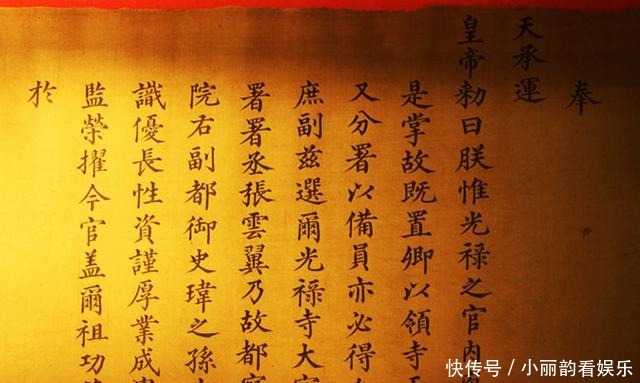 奉
天承運
皇帝勅曰朕惟光禄之官内
是掌故既置卿以領寺
又分署以備員亦必得
庶副兹選爾光禄寺大
署署丞張雲翼乃故都
院右副都御史瑋之孫
識優長性資謹厚業成
監榮擢今官盖爾祖功
於
快传号／小丽韵看娱乐